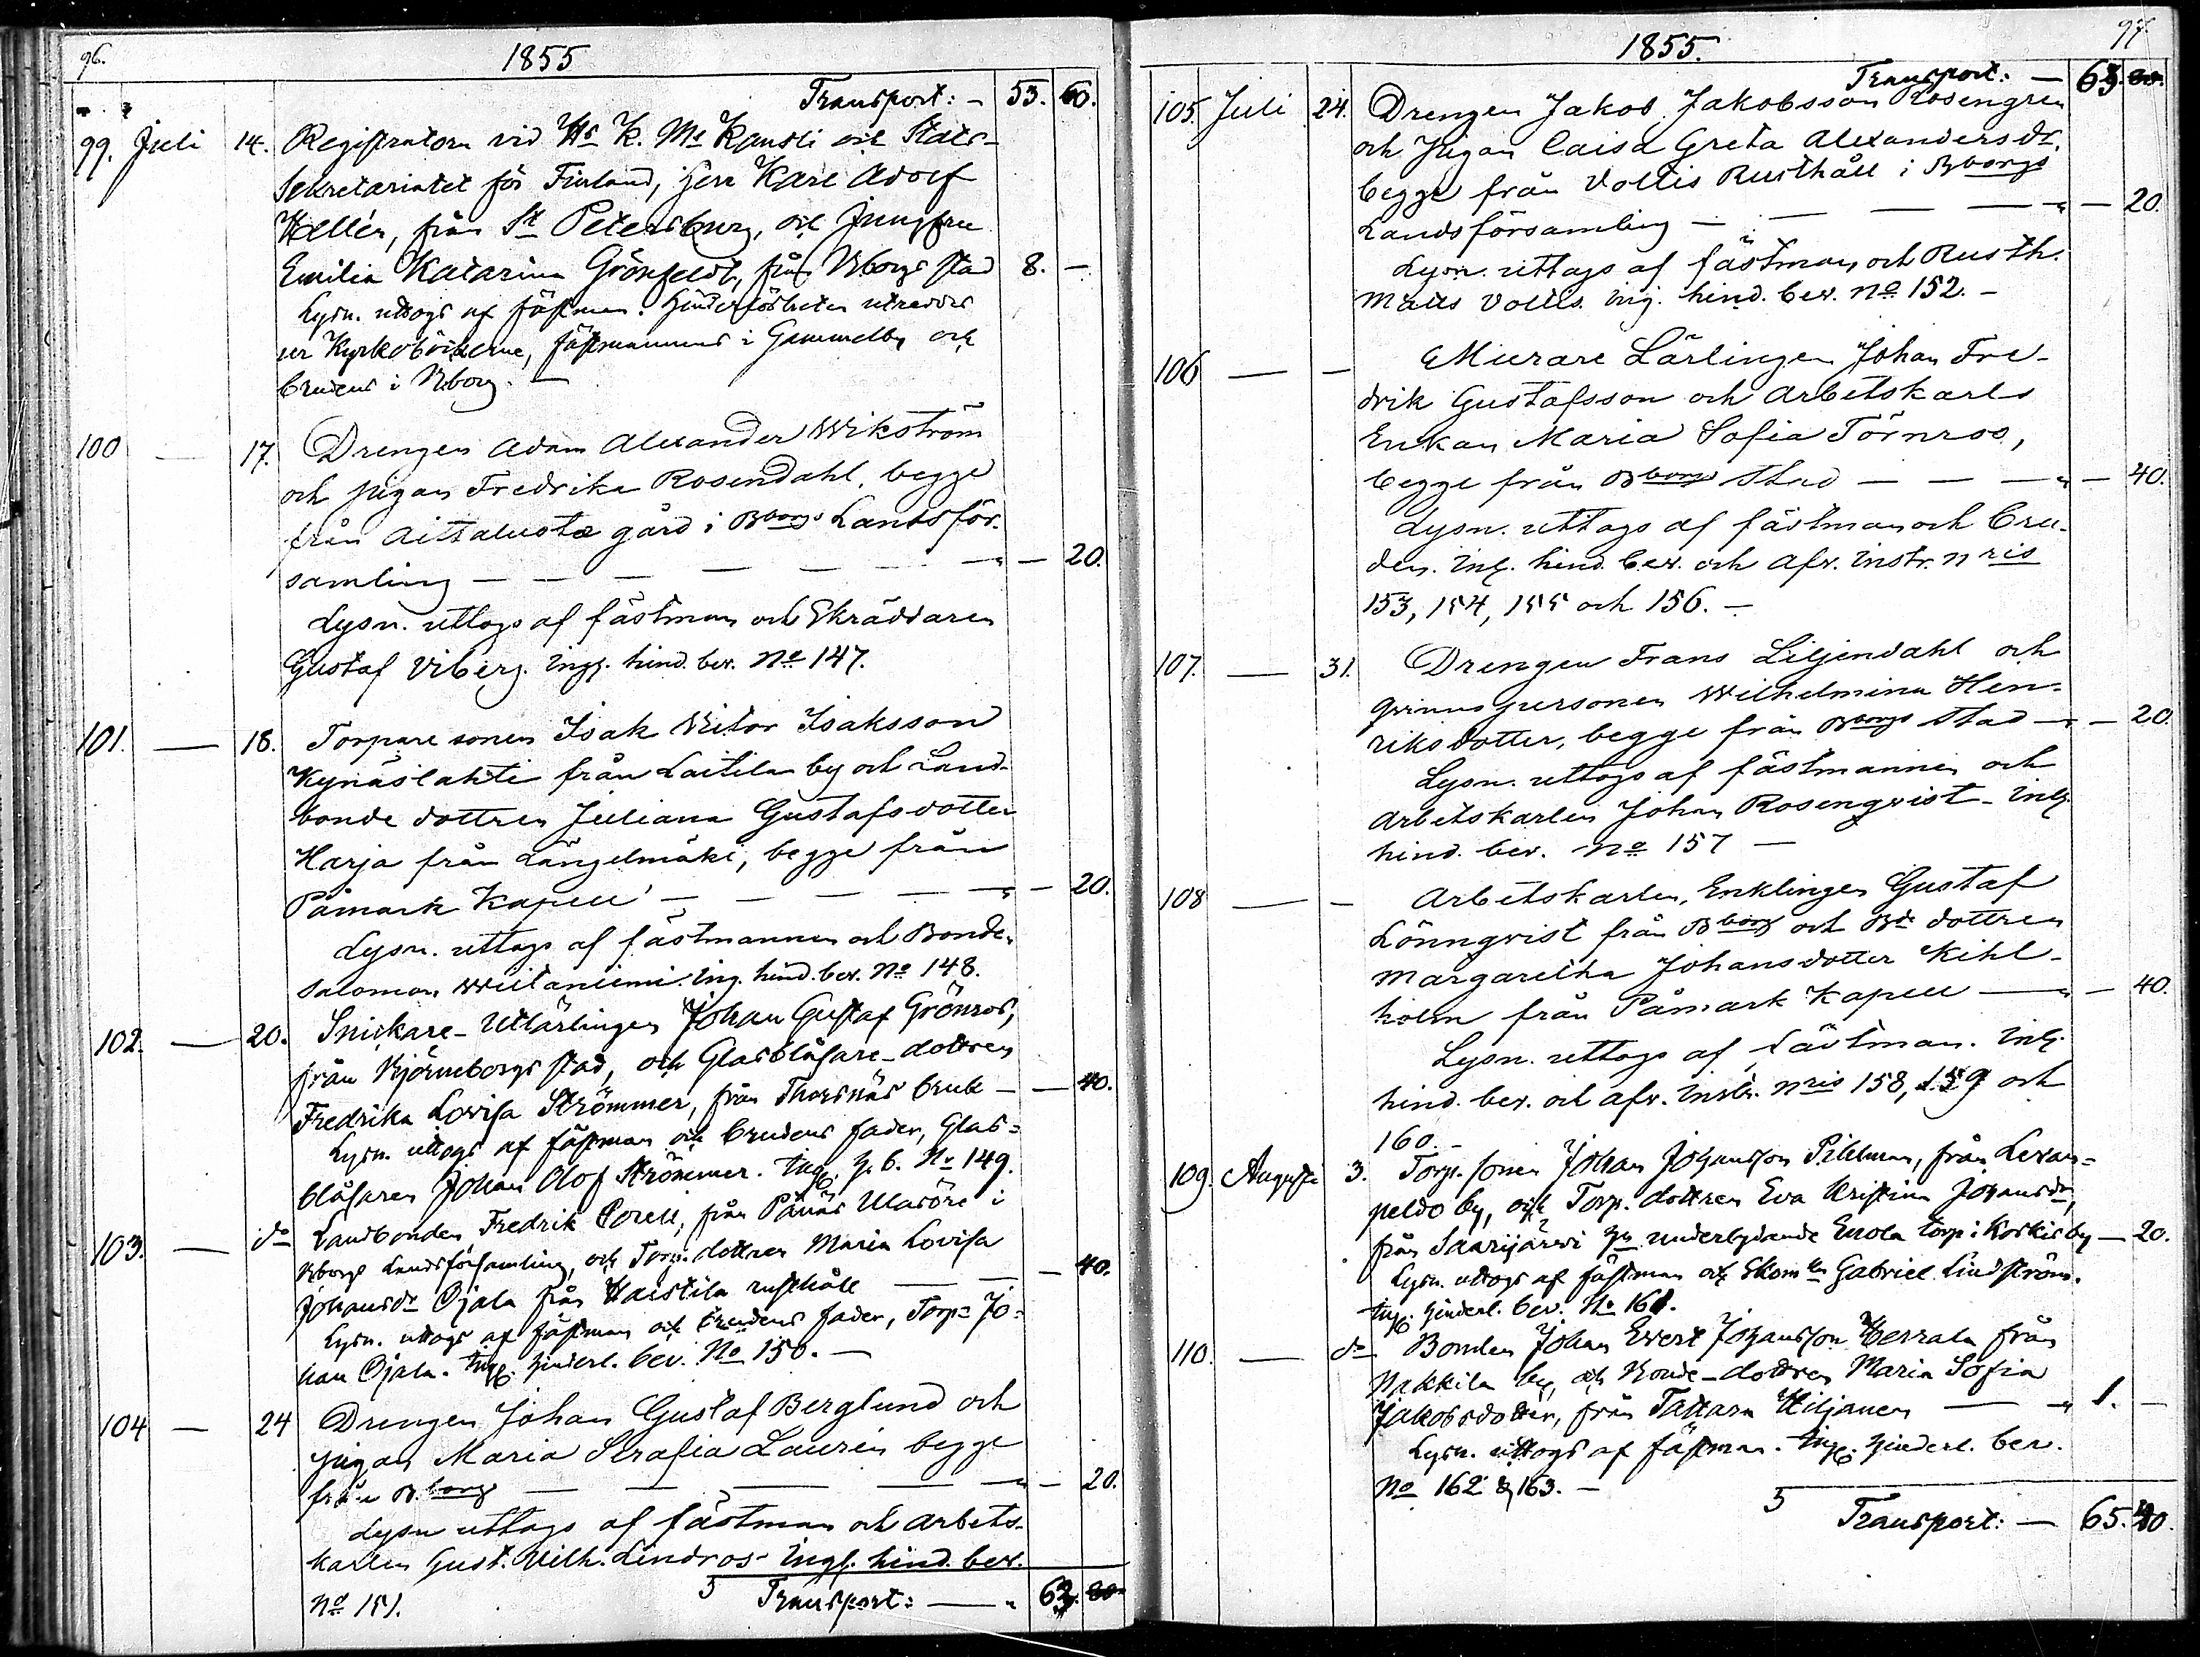 96.
1855
Transport: — 53. 60.
99. Juli 14. Registratorn vid Hs K. Ms Kansli och Stats-
Sekretariatet för Finland, Herr Karl Adolf
Hellén, från St Petersburg, och Jungfru
Emilia Katarina Grönfeldt, från Bborgs stad 8. —
Lysn. uttogs af fästman. Hinderslösheten utreddes
ur Kyrkoböckerne, fästmannens i Gammelby och
brudens i Bborg. —
100 — 17. Drengen Adam Alexander Wikström
och pigan Fredrika Rosendahl, begge
från Aittaluoto gård i Bborgs Landsför-
samling — — — — — " — 20.
Lysn. uttogs af fästman och Skräddaren
Gustaf Viberg. ingf. hind. bev. No 147.
101. — 18. Torpare sonen Isak Vitor Isaksson
Kynäslahti från Laitila by och Land-
bonde dottren Juliana Gustafsdotter
Harja från Längelmäki, begge från
Påmark Kapell — — — — " — 20.
Lysn. uttogs af fästmannen och Bonden
Salomon Wiitaniemi. ing. hind. bev. No 148.
102. — 20. Snickare-Utlärlingen Johan Gustaf Grönros,
från Björneborgs stad, och Glasblåsare-dottren
Fredrika Lovisa Strömmer, från Thorsnäs bruk — — 40.
Lysn. uttogs af fästman och brudens fader, Glas=
blåsaren Johan Olof Strömmer. Ingf. h. b. No 149.
103. — do Landbonden Fredrik Borell, från Pånäs Ulasöre i
Bborgs Landsförsamling, och Torp. dottren Maria Lovisa
Johansdr Ojala från Haistila rusthåll — — — 40.
Lysn. uttogs af fästman och brudens fader, Torp= Jo=
han Ojala. Ingf. hinderl. bev. No 150. —
104 — 24 Drengen Johan Gustaf Berglund och
pigan Maria Serafia Laurén begge
från B.borg — — — — " — 20.
Lysn uttogs af fästman och arbets-
karlen Gust. Vilh. Lindros- Ingf. hind. bev.
No 151.
Transport: — " 63.
97.
1855.
Transport: — 63.
105. Juli 24. Drengen Jakob Jakobsson Rosengren
och Pigan Caisa Greta Alexandersdr.
begge från Vollis Rusthåll i Bborgs
Landsförsamling — — — — " — 20.
Lysn. uttogs af fästman och Rusth.
Matts Vollis. ing. hind. bev. No 152. —
106 — — Murare Lärlingen Johan Fre-
drik Gustafsson och Arbetskarls
Enkan Maria Sofia Törnros,
begge från Bborgs Stad — — — " — 40.
Lysn. uttogs af fästman och bru-
den. ingf. hind. bev. och afv. instr. nris
153, 154, 155 och 156. —
107. — 31. Drengen Frans Liljendahl och
qvinnspersonen Wilhelmina Hen-
riksdotter, begge från Bborgs stad — " — 20.
Lysn. uttogs af fästmannen och
Arbetskarlen Johan Rosenqvist - ingf.
hind. bev. No 157 —
108 — — Arbetskarlen, Enklingen Gustaf
Lönnqvist från Bborg och Bde dottren
Margaretha Johansdotter Kihl-
holm från Påmark Kapell — " — 40.
Lysn. uttogs af fästman. ingf.
hind. bev. och afv. instr. nris 158, 159 och
160. —
109. Augusti 3. Torp. sonen Johan Johansson Pihlman, från Levan=
peldo by, och Torp. dottren Eva Kristina Johansdr,
från Saarijärvi underlydande Enola torp i Koskis by — 20.
Lysn. uttogs af fästman och Skomkn Gabriel Lindström.
Ingf. hinderl. bev. No 161.
110. — do Bonden Johan Evert Johansson Herrala från
Nakkila by, och Bonde-dottren Maria Sofia
Jakobsdotter, från Tattara Hiljanen — " 1. —
Lysn. uttogs af fästman. Ingf. hinderl. bev.
No 162 & 163. —
Transport: — 65. 40.